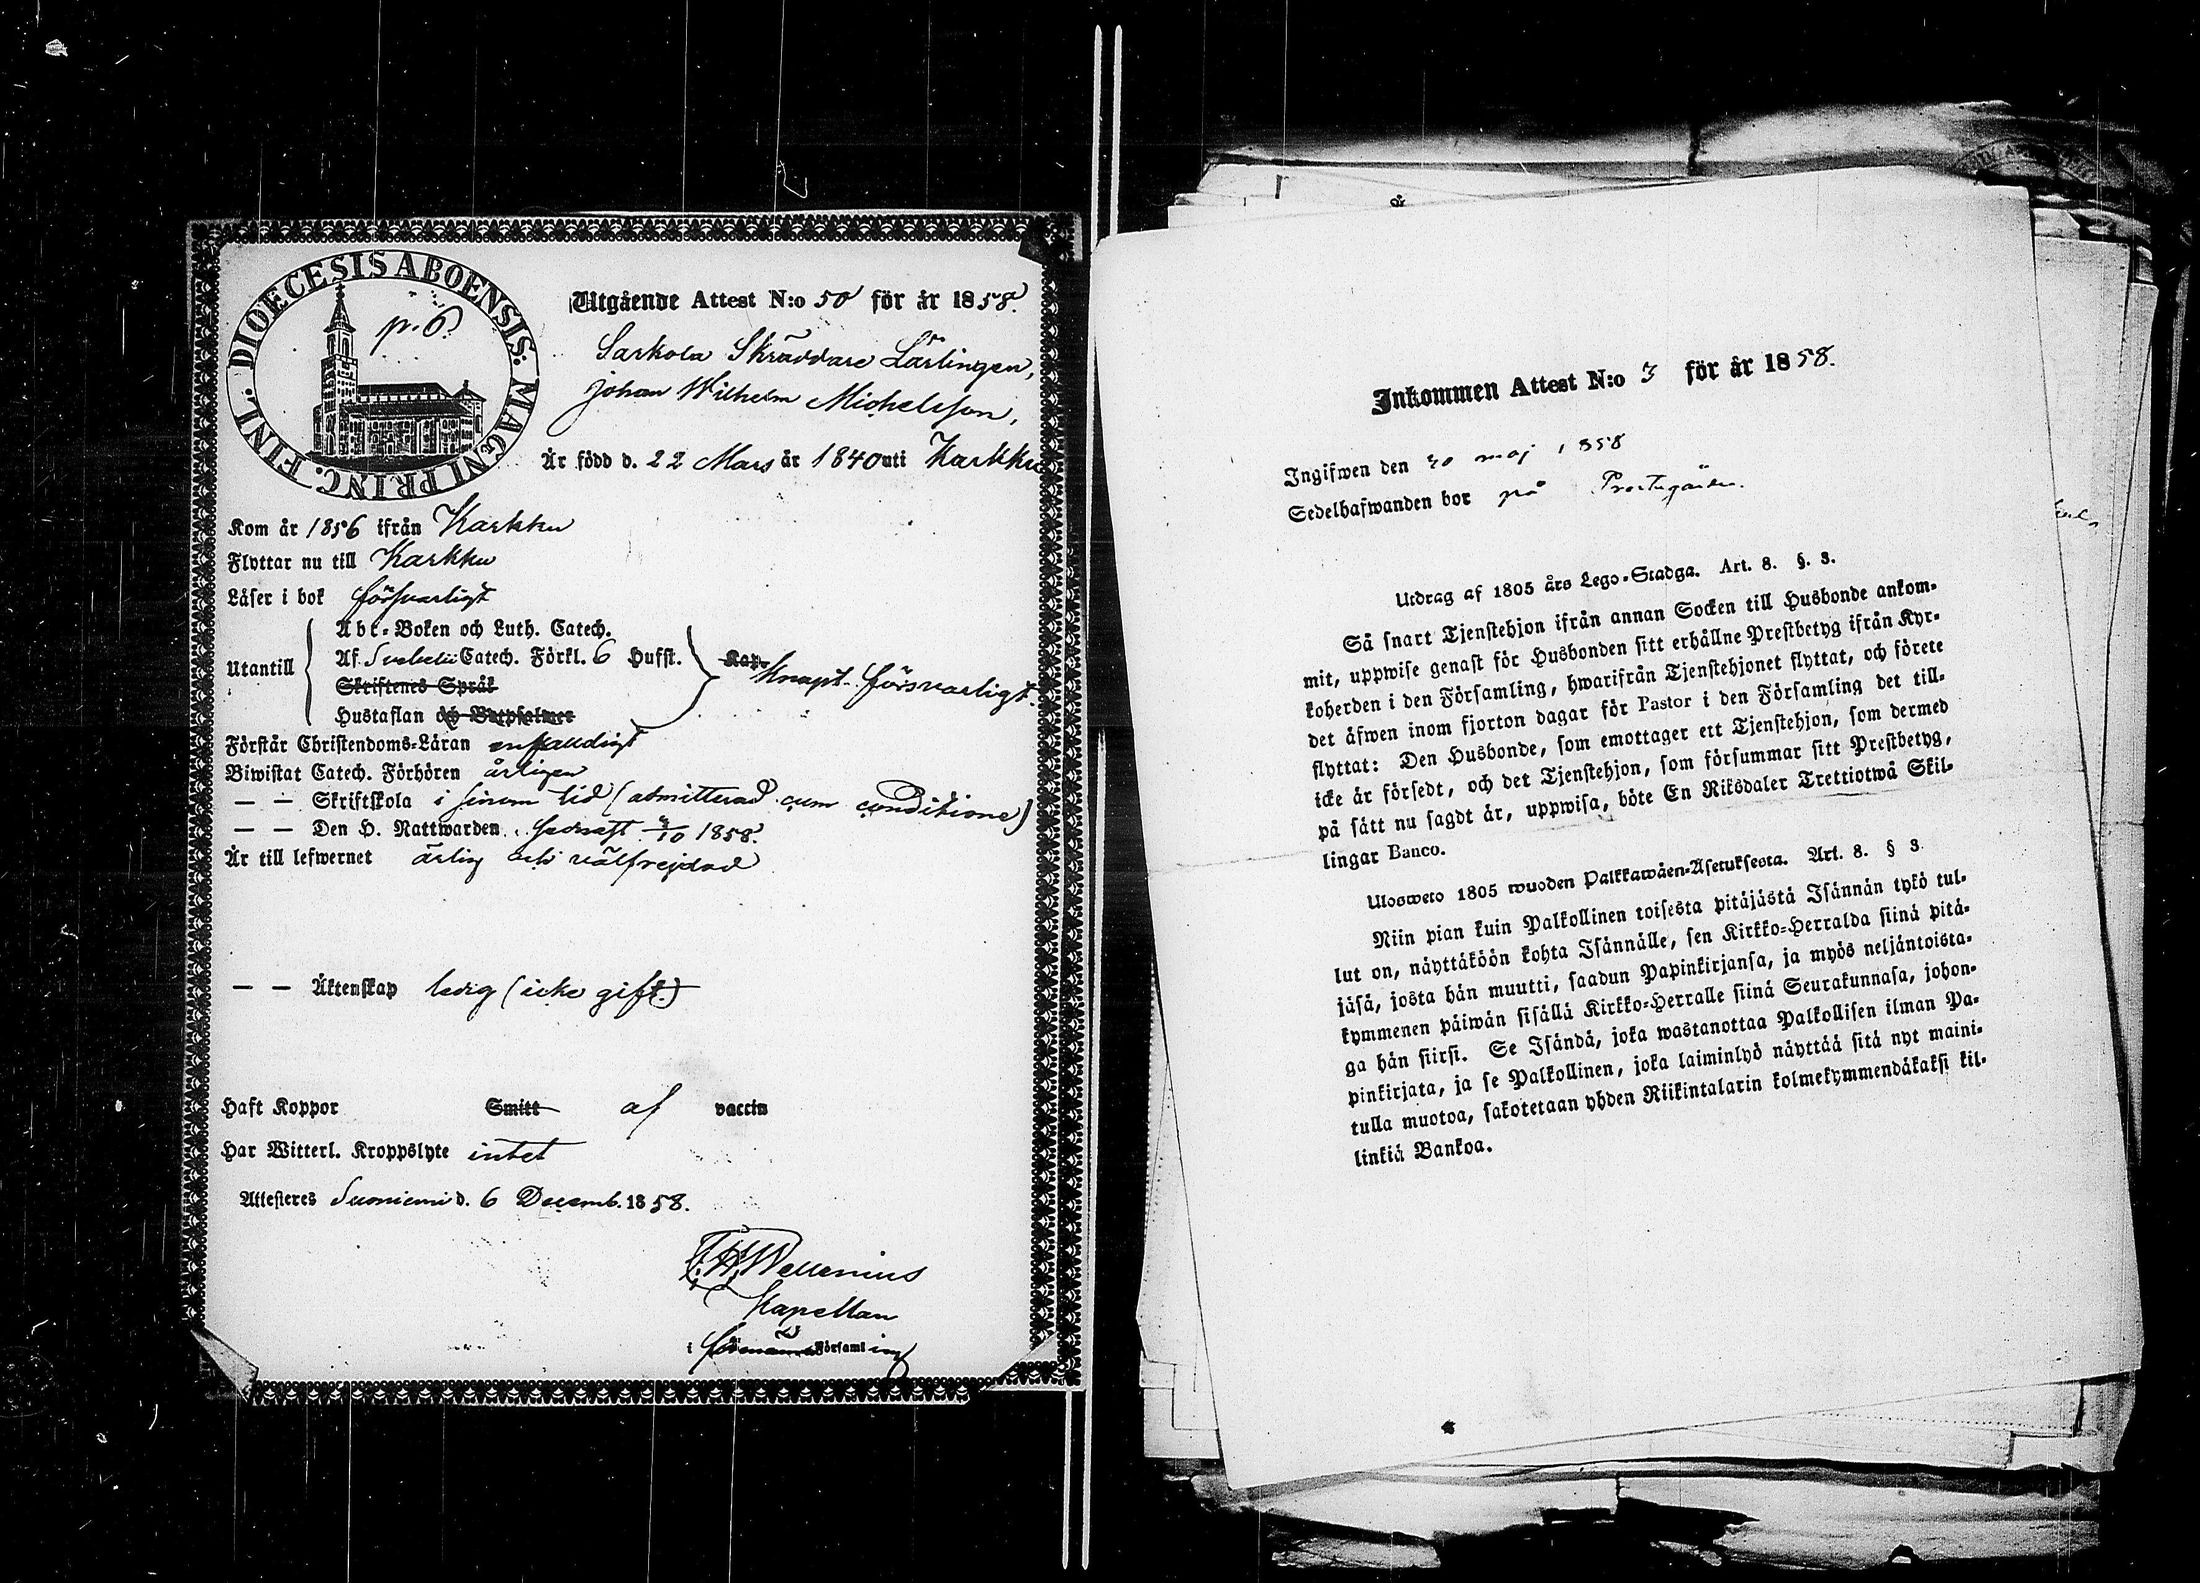 DIOECESIS ABOENSIS. MAGNI PRINC. FINL.
p. 6.
Utgående Attest N:o 50 för år 1858.
Sarkola Skräddare Lärlingen,
Johan Wilhelm Michelsson,
Är född d. 22 Mars år 1840 uti Karkku
Kom år 1856 ifrån Karkku
Flyttar nu till Karkku
Läser i bok försvarligt
Abc-Boken och Luth. Catech.
Utantill Af Svebelii Catech. Förkl. 6 Hufst. Knapt försvarligt.
Skriftenes Språk
Hustaflan och Botpsalmer
Förstår Christendoms-Läran enfaldigt
Biwistat Catech. Förhören årligen
— — Skriftskola i sinom tid (admitterad cum conditione)
— — Den H. Nattwarden sednast /10 1858.
Är till lefwernet ärlig och välfrejdad
— — Äktenskap ledig (icke gift.)
Haft Koppor Smitt af vaccin
Har Witterl. Kroppslyte intet
Attesteres Suoniemi d. 6 Decemb. 1858.
Wellenius
Kapellan
i församling
Inkommen Attest N:o 3 för år 1858.
Ingifwen den 20 maj 1858
Sedelhafwanden bor på Prestegården.
Utdrag af 1805 års Lego-Stadga. Art. 8. §. 3.
Så snart Tjenstehjon ifrån annan Socken till Husbonde ankom-
mit, uppwise genast för Husbonden sitt erhållne Prestbetyg ifrån Kyr-
koherden i den Församling, hwarifrån Tjenstehjonet flyttat, och förete
det äfwen inom fjorton dagar för Pastor i den Församling det till-
flyttat: Den Husbonde, som emottager ett Tjenstehjon, som dermed
icke är försedt, och det Tjenstehjon, som försummar sitt Prestbetyg,
på sätt nu sagdt är, uppwisa, böte En Riksdaler Trettiotwå Skil-
lingar Banco.
Ulosweto 1805 wuoden Palkkawäen-Asetuksesta. Art. 8. § 3
Niin pian kuin Palkollinen toisesta pitäjästä Isännän tykö tul-
lut on, näyttäköön kohta Isännälle, sen Kirkko-Herralda siinä pitä-
jäsä, josta hän muutti, saadun Papinkirjansa, ja myös neljäntoista-
kymmenen päiwän sisällä Kirkko-Herralle siinä Seurakunnasa, johon-
ga hän siirsi. Se Isändä, joka wastanottaa Palkollisen ilman Pa-
pinkirjata, ja se Palkollinen, joka laiminlyö näyttää sitä nyt maini-
tulla muotoa, sakotetaan yhden Riikintalarin kolmekymmendäkaksi kil-
linkiä Bankoa.